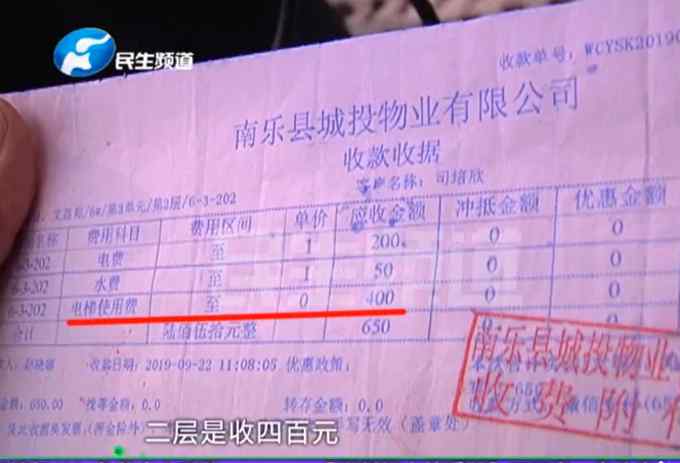 民生频道
收款单号: WCYSK2019
南乐县城投物业有限公司
收款收据
客户名称: 司培欣
/第3单元/第2层/6-3-202
名称 费用科目 费用区间 单价 应收金额 冲抵金额 优惠金额
-3-202 电费 至 1 200 0 0
-3-202 水费 至 1 50 0 0
6-3-202 电梯使用费 至 0 400 0 0
合计 陆佰伍拾元整 650 0
收款日期: 2019-09-22 11:08:05 优惠政策:
金额: 650.00 找零金额: 0.0 转存金额: 0.0
南乐县城投物业
收费附
二层是收四百元
写无效(盖章处)